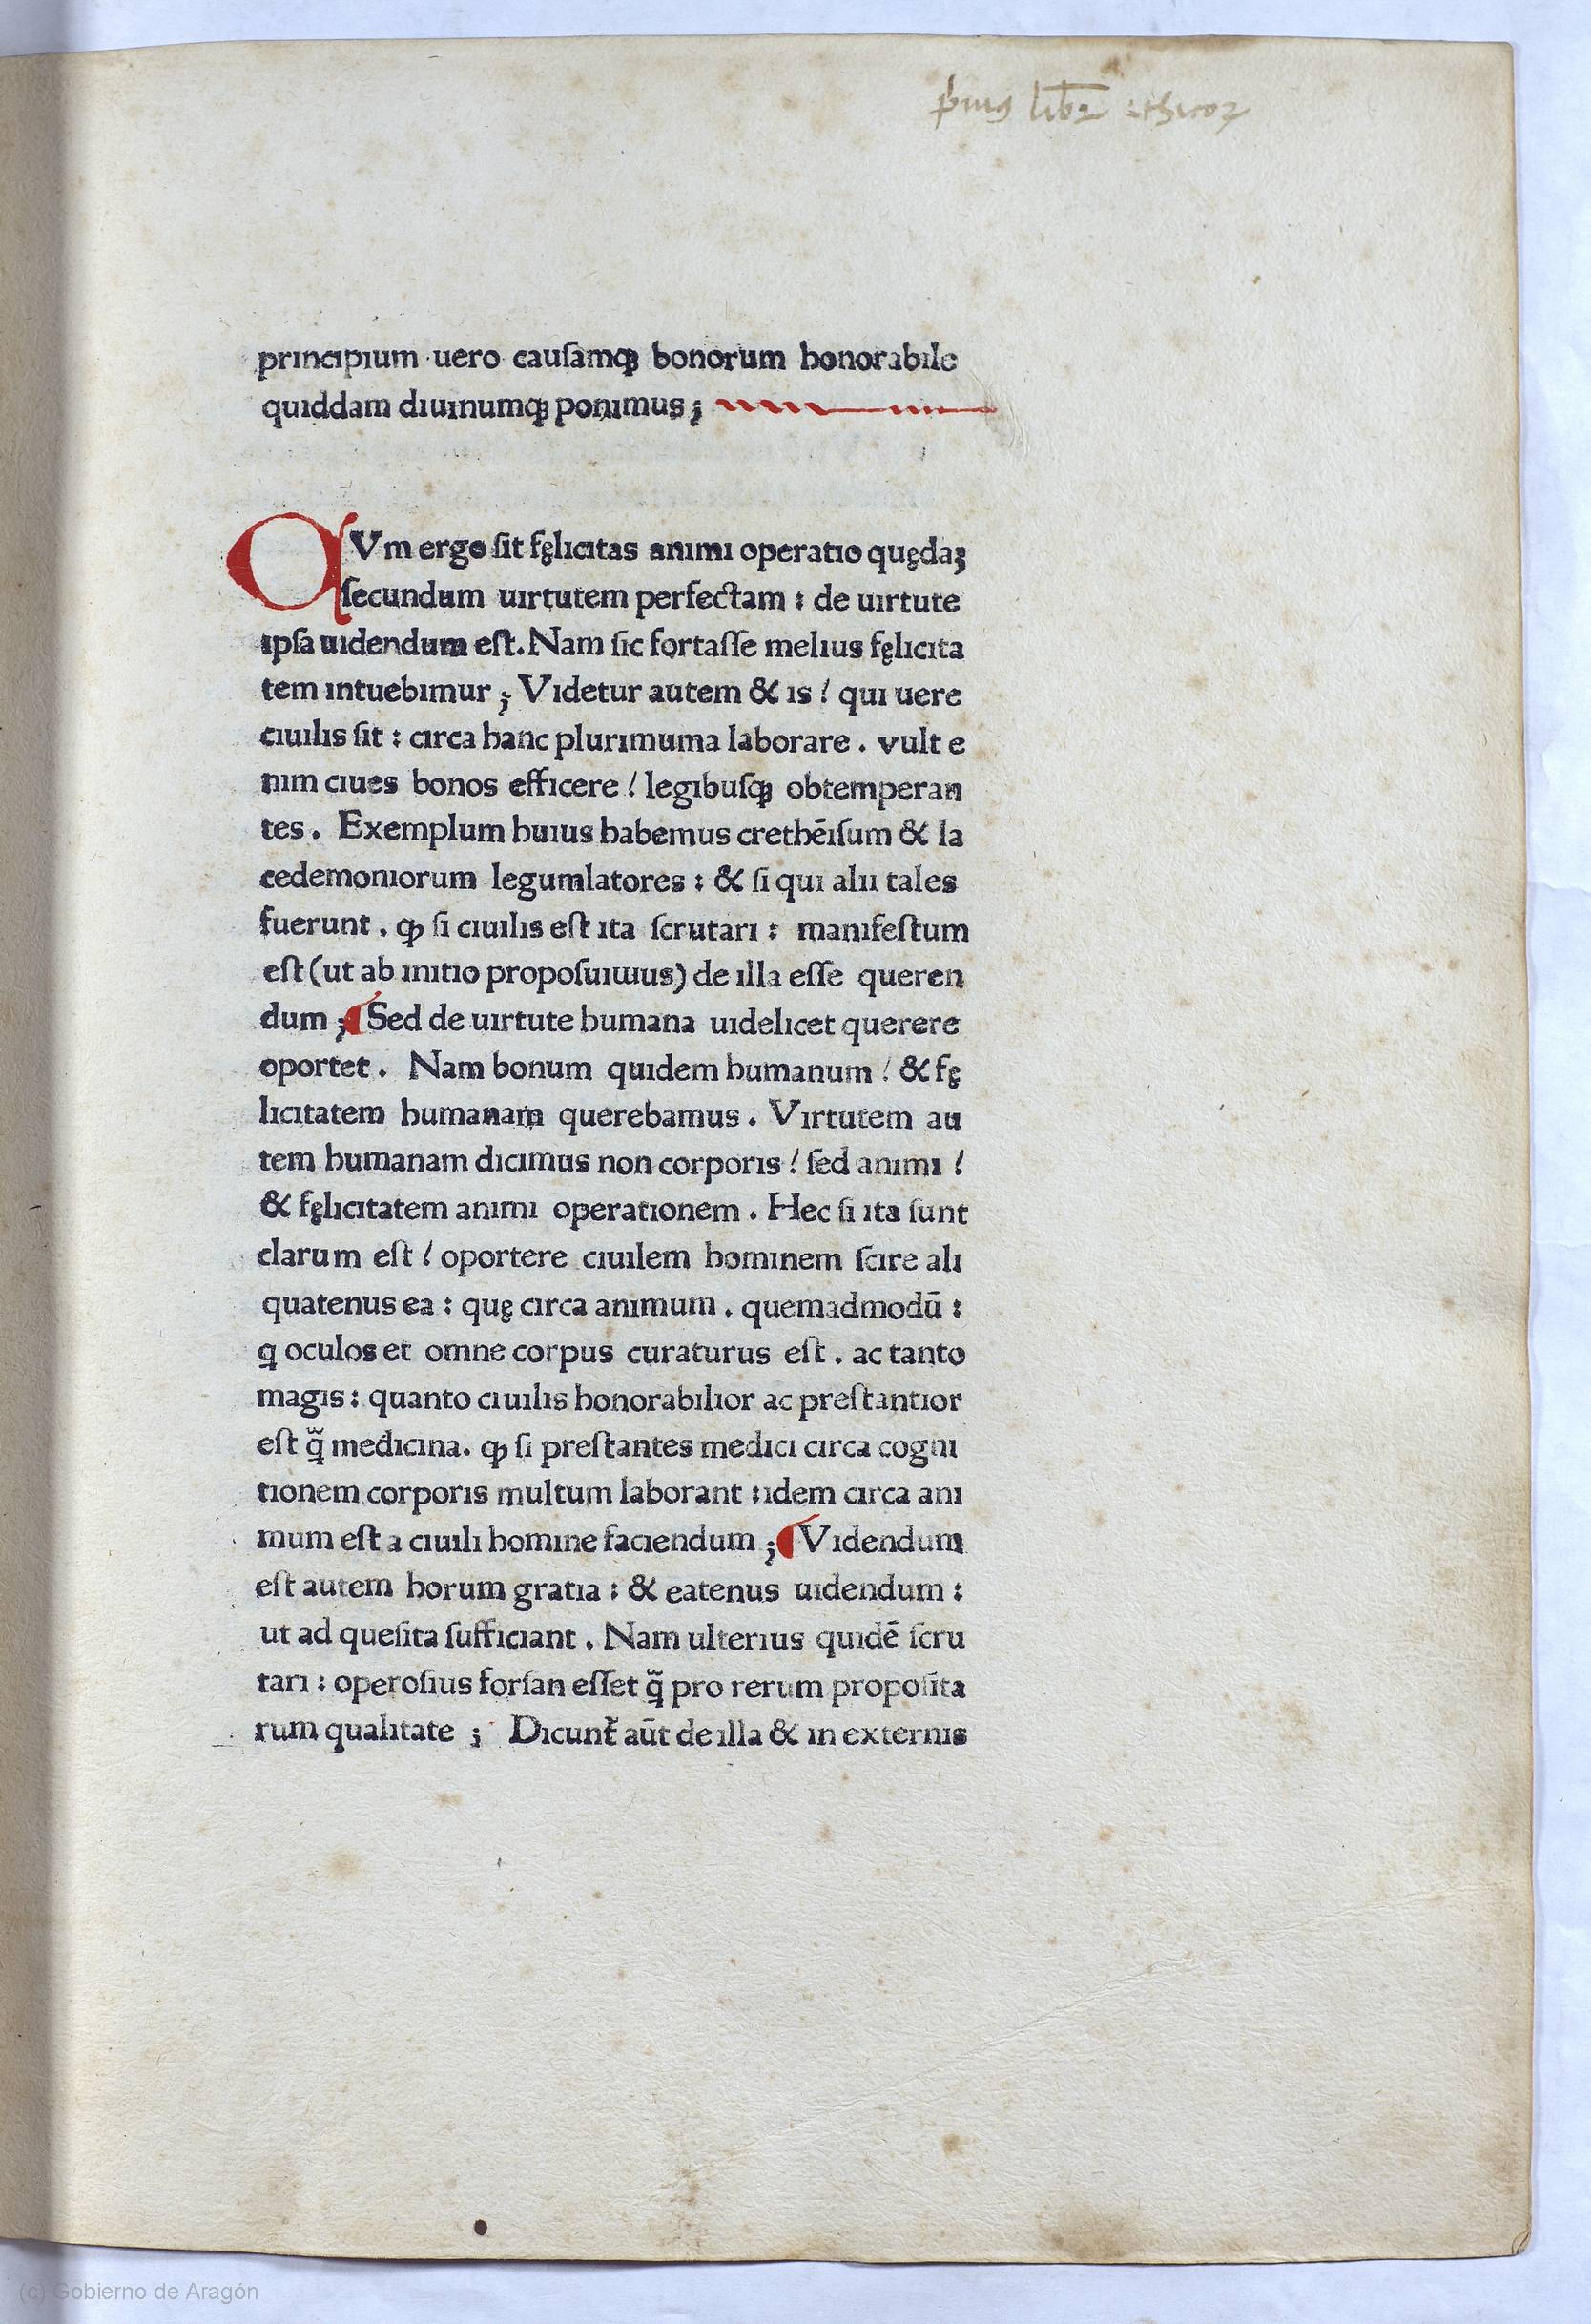 pꝛimꝰ libꝛ ethicoꝝ
principium uero cauſamqꝫ bonorum honorabile
quiddam diuinumqꝫ ponimus ;
QVm ergo ſit fęlicitas animi operatio quędaꝫ
ſecundum uirtutem perfectam : de uirtute
ipſa uidendum eſt. Nam ſic fortaſſe melius fęlicita
tem intuebimur ; Videtur autem & is / qui uere
ciuilis ſit : circa hanc plurimuma laborare . vult e
nim ciues bonos efficere / legibuſqꝫ obtemperan
tes . Exemplum huius habemus crethēiſum & la
cedemoniorum legumlatores : & ſi qui alii tales
fuerunt . ꝙ ſi ciuilis eſt ita ſcrutari : manifeſtum
eſt (ut ab initio propoſuiɯus) de illa eſſe queren
dum ; ¶ Sed de uirtute humana uidelicet querere
oportet . Nam bonum quidem humanum / & fę
licitatem humanam querebamus . Virtutem au
tem humanam dicimus non corporis / ſed animi /
& fęlicitatem animi operationem . Hec ſi ita ſunt
clarum eſt / oportere ciuilem hominem ſcire ali
quatenus ea : quę circa animum . quemadmodū :
q oculos et omne corpus curaturus eſt . ac tanto
magis : quanto ciuilis honorabilior ac preſtantior
eſt q̃ medicina. ꝙ ſi preſtantes medici circa cogni
tionem corporis multum laborant : idem circa ani
mum eſt a ciuili homine faciendum ; ¶ Videndum
eſt autem horum gratia : & eatenus uidendum :
ut ad queſita ſufficiant . Nam ulterius quidē ſcru
tari : operoſius forſan eſſet q̃ pro rerum propoſita
rum qualitate ; Dicunt᷑ aūt de illa & in externis
(c) Gobierno de Aragón